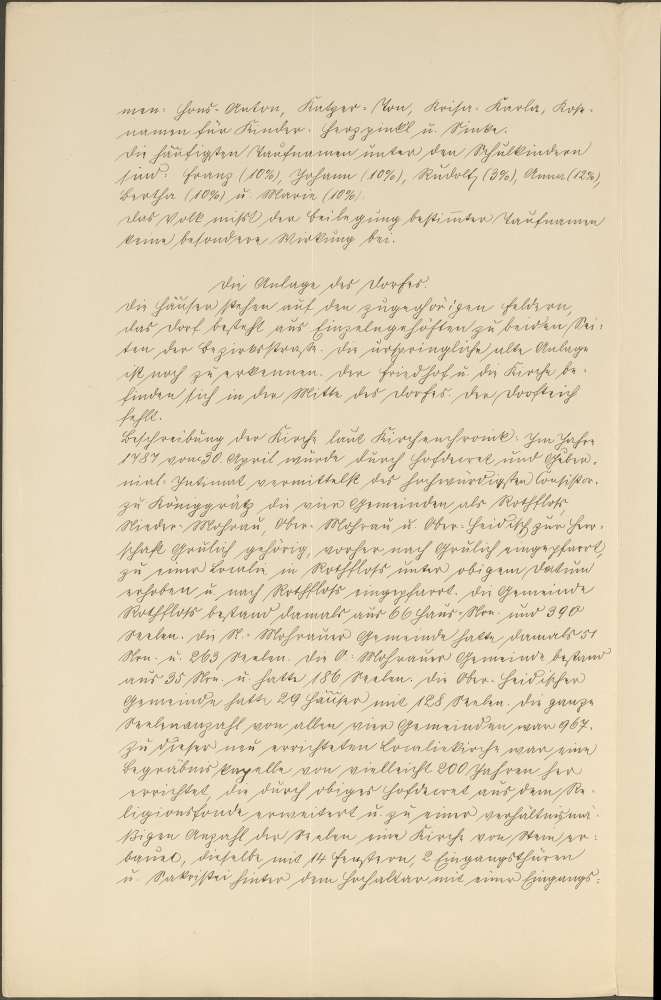 men: Hons-Anton, Katper-Ton, Krisa-Karla, Kose-
namen für Kinder: Herzpinkl u. Pinke.
Die häufigsten Taufnamen unter den Schulkindern
sind: Franz (10%), Johann (10%), Rudolf (3%), Anna (12%),
Bertha (10%) u. Marie (10%).
Das Volk mißt der Beilegung bestimmter Taufnamen
keine besondere Wirkung bei.
Die Anlage des Dorfes.
Die Häuser stehen auf den zugehörigen Feldern,
das Dorf besteht aus Einzelngehöften zu beiden Sei-
ten der Bezirksstraße. Die ursprüngliche alte Anlage
ist noch zu erkennen. Der Friedhof u. die Kirche be-
finden sich in der Mitte des Dorfes. Der Dorfteich
fehlt.
Beschreibung der Kirche laut Kirchenchronik: Im Jahre
1787 vom 30. April wurde durch Hofdecret und Guber-
nial-Intimat vermittelst des hochwürdigsten Consistor.
zu Königgrätz die vier Gemeinden als Rothfloß,
Nieder-Mohrau, Ober-Mohrau u. Ober-Heidisch zur Herr-
schaft Grulich gehörig, vorher nach Grulich eingepfarrt,
zu einer Localie in Rothfloß unter obigem Datum
erhoben u. nach Rothfloß eingepfarrt. Die Gemeinde
Rothfloß bestand damals aus 66 Haus-Nrn. und 390
Seelen. Die N.-Mohrauer Gemeinde hatte damals 51
Nrn. u. 263 Seelen. Die O.-Mohrauer Gemeinde bestand
aus 35 Nrn. u. hatte 186 Seelen. Die Ober-Heidischer
Gemeinde hatte 29 Häuser mit 128 Seelen. Die ganze
Seelenanzahl von allen vier Gemeinden war 967.
Zu dieser neu errichteten Localiekirche war eine
Begräbniskapelle von vielleicht 200 Jahren her
errichtet, die durch obiges Hofdecret aus dem Re-
ligionsfonde erweitert u. zu einer verhältnismä-
ßigen Anzahl der Seelen eine Kirche von Stein er-
bauet, dieselbe mit 14 Fenstern, 2 Eingangsthüren
u. Sakristei hinter dem Hochaltar mit einer Eingangs-